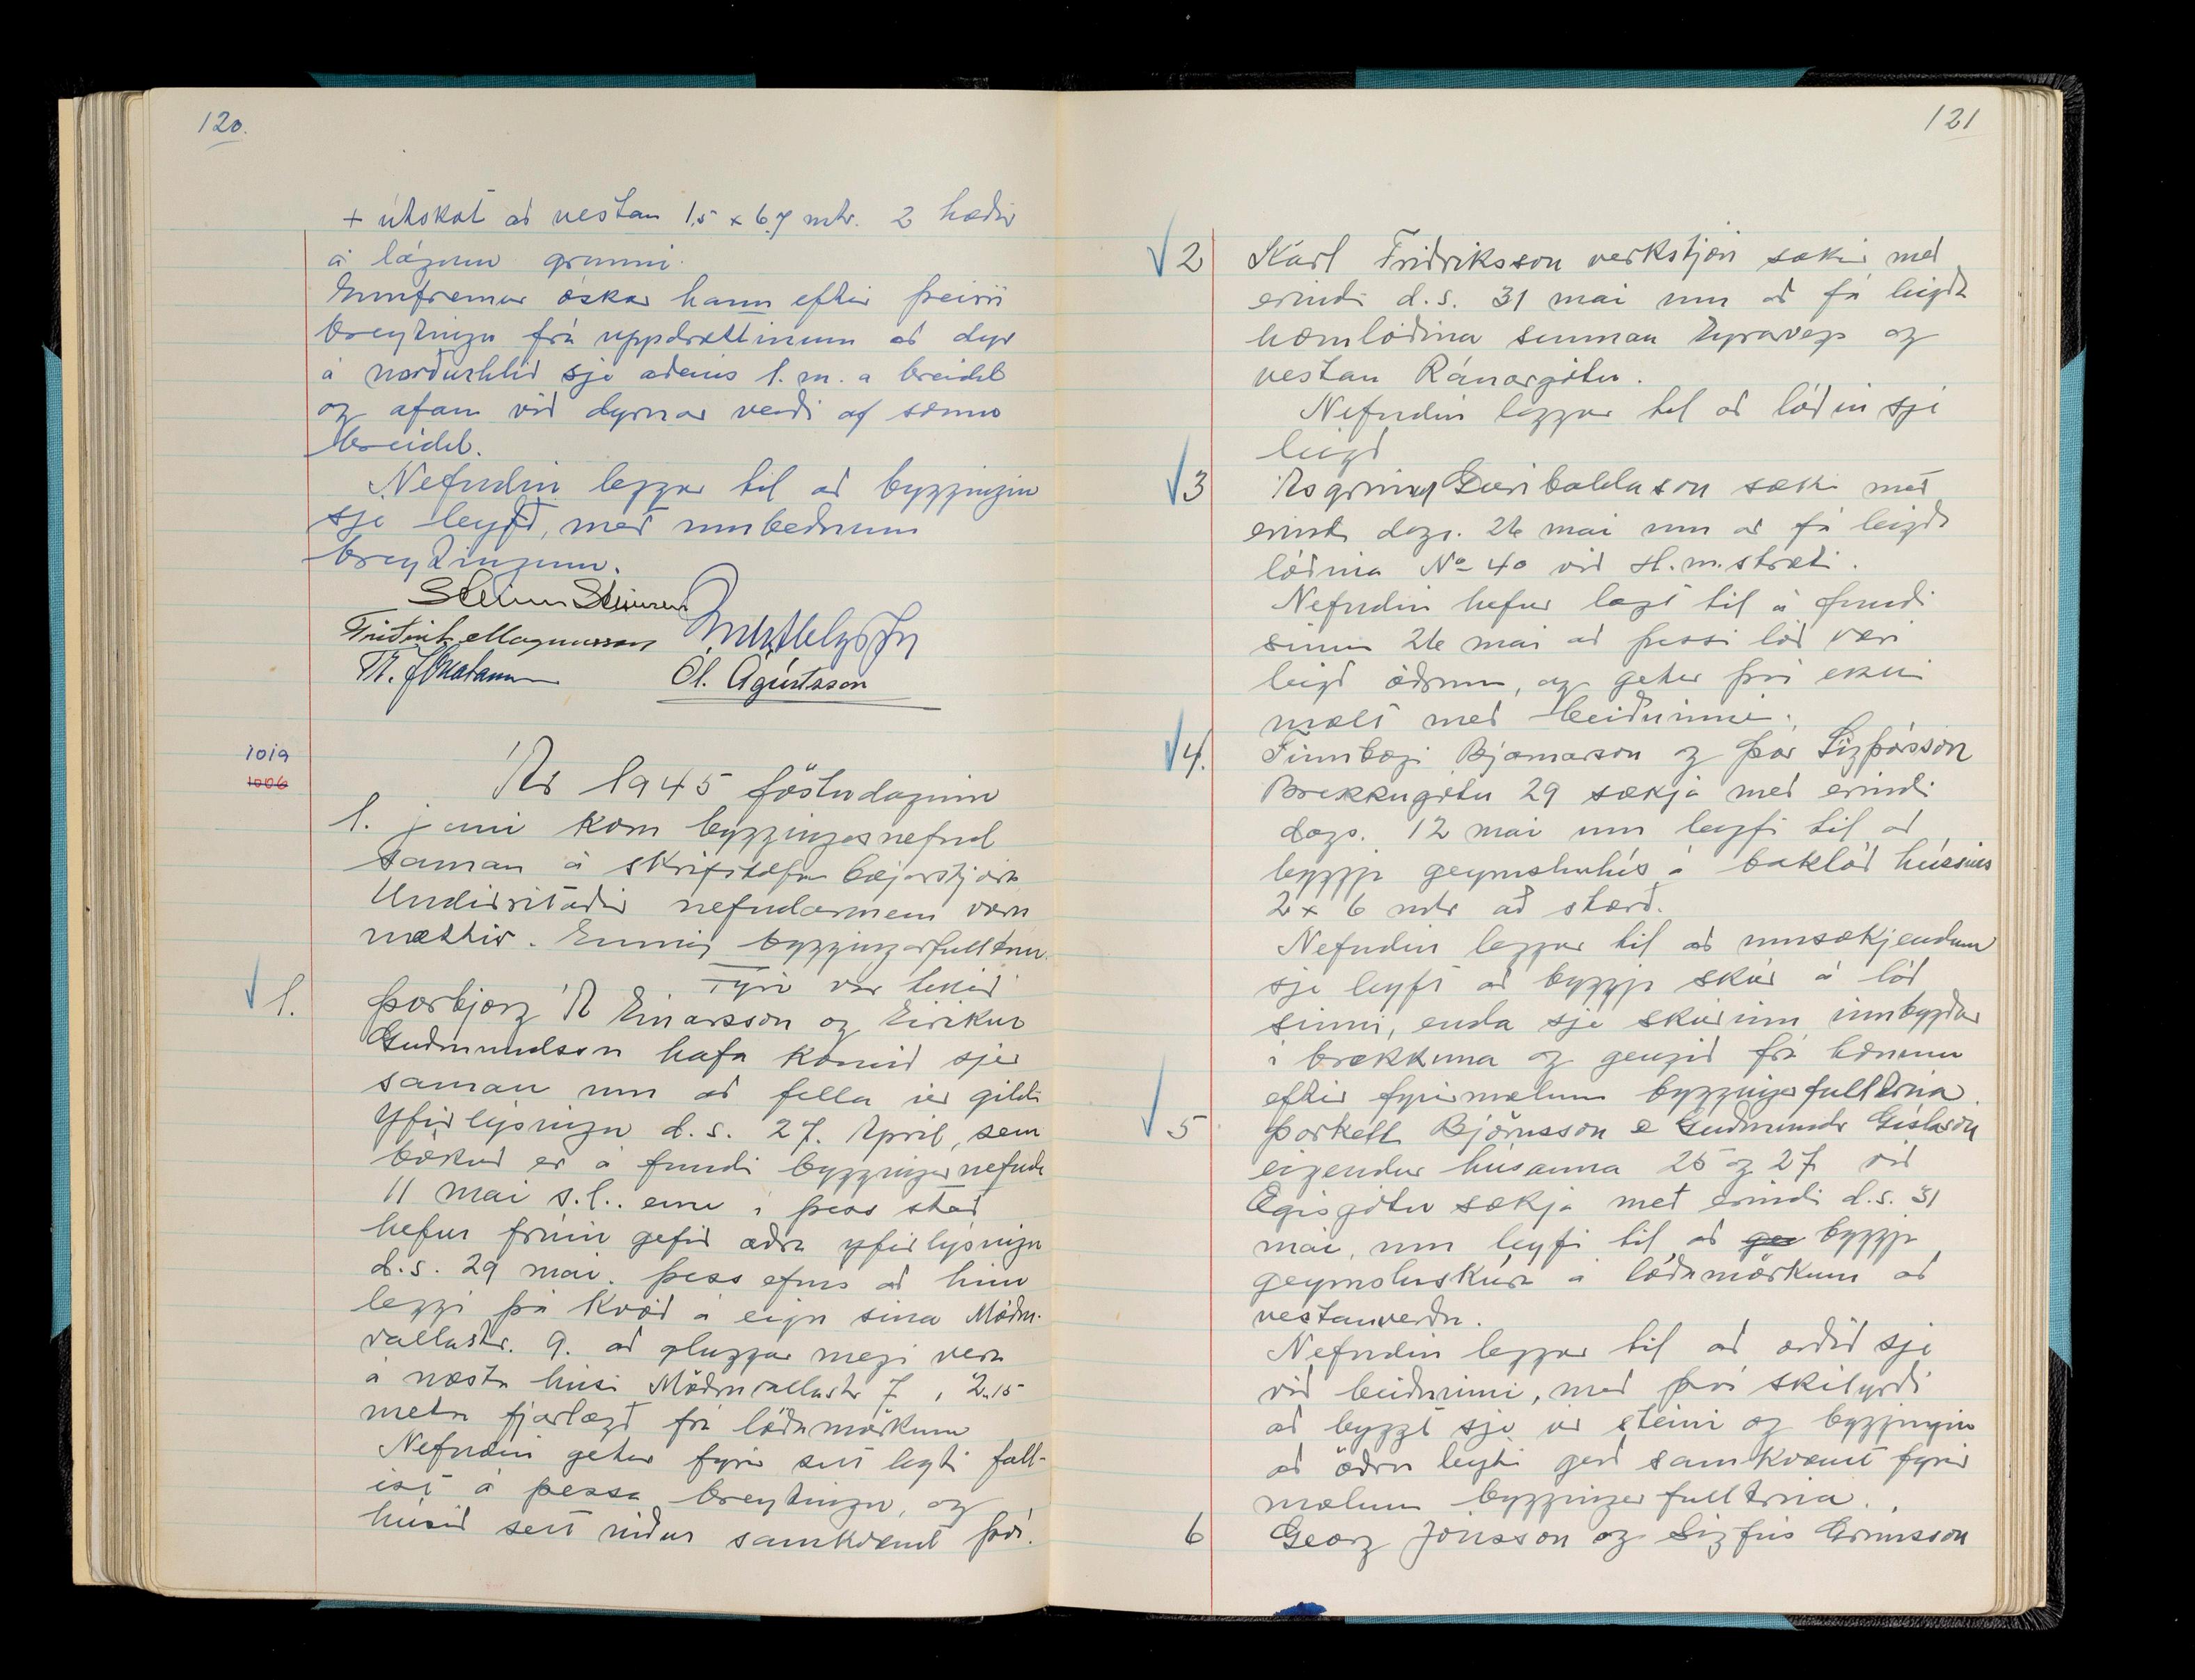 120.
+ útskot að vestan 1,5 x 6,7 mtr. 2 hæðir
á lágum grunni.
Ennfremur óskar hann eftir þeirri
breytingu frá uppdrættinum að dyr
á norðurhlið sje aðeins 1. m. á breidd
og ofan við dyrnar verði af sömu
breidd.
Nefndin leggur til að byggingin
sje leyfð, með umbeðnum
breytingum.
Steinn Steinsen
Friðrik Magnusson
Ól. Ágústsson
1019
1006
Ár 1945 föstudaginn
1. juni kom bygginganefnd
saman á skrifstofu bæjarstjóra
Undirritaðir nefndarmenn voru
mættir. Ennig byggingarfulltrui.
Fyrir var tekið
1. Þorbjörg Á Einarsson og Eirikur
Guðmundsson hafa komið sjer
saman um að fella úr gildi
Yfirlýsingu d.s. 27. April, sem
bókuð er á fundi bygginganefndr
11 mai s.l. enn í þess stað
hefur frúin gefið aðra yfirlýsingu
d.s. 29 mai. þess efnis að hún
leggi þá kvöð á eign sína Möðru-
vallastr. 9. að gluggar megi vera
á næsta húsi Möðruvallastr 7, í 2.15
metra fjarlægð frá lóðamörkum
Nefndin getur fyrir sitt leyti fall-
ist á þessa breytingu, og
húsið sett niður samkvæmt því.
121
2 Karl Friðriksson verkstjóri sækir með
erindi d.s. 31 mai um að fá leigða
hornlóðina sunnan Eyrarvegs og
vestan Ránargötu.
Nefndin leggur til að lóðin sje
leigð
3 Ásgrímur Garibaldason sækir með
erindi dags. 26 mai um að fá leigða
lóðina No 40 við H.m.stræti.
Nefndin hefur lagt til á fundi
sínum 26 mai að þessi lóð væri
leigð öðrum, og getur því ekki
mælt með beiðninni.
4. Finnbogi Bjarnason og Þór Sigþórsson
Brekkugötu 29 sækja með erindi
dags. 12 mai um leyfi til að
byggja geymsluhús á baklóð hússins
2 x 6 mtr að stærð.
Nefndin leggur til að umsækjendum
sje leyft að byggja skúr á lóð
sinni, enda sje skúrinn innbyggður
í brekkuna og gengið frá honum
eftir fyrirmælum byggingafulltrúa.
5 Þorkell Björnsson & Guðmundr Gíslason
eigendur húsanna 25 og 27 við
Ægisgötu sækja með erindi d.s. 31
mai, um leyfi til að ge byggja
geymsluskúra á lóðamörkum að
vestanverðu.
Nefndin leggur til að orðið sje
við beiðninni, með því skilyrði
að byggt sje úr steini og byggingin
að öðru leyti gerð samkvæmt fyrir
mælum byggingarfulltrúa.
6 Georg Jónsson og Sigfús Grímsson